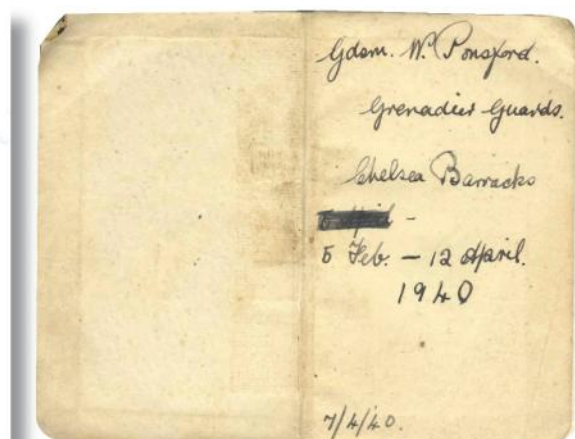 Gdsm. W. Ponsford.
Grenadier Guards.
Chelsea Barracks
5 April -
5 Feb. — 12 April.
1940
7/4/40.